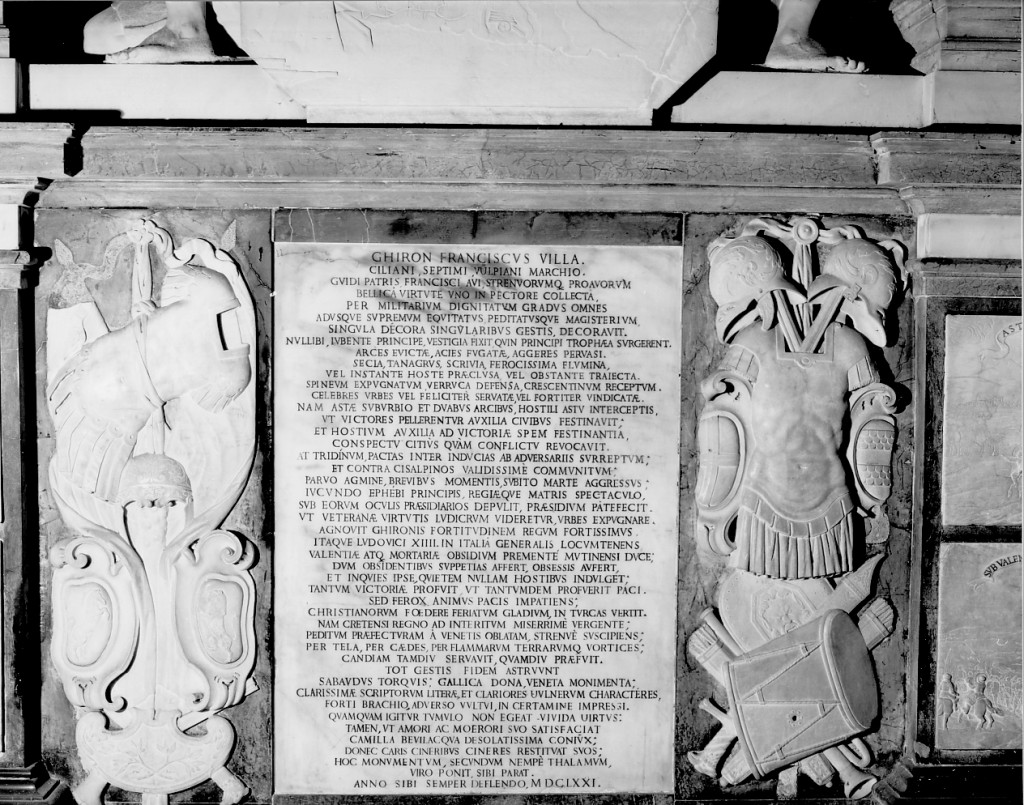 GHIRON FRANCISCVS VILLA.
CILIANI, SEPTIMI VULPIANI MARCHIO.
GVIDI PATRIS FRANCISCI AVI, STRENVORVMQ, PROAVORVM
BELLICÂ VIRTVTE VNO IN PECTORE COLLECTA,
PER MILITARIVM DIGNITATVM GRADVS OMNES
ADVSQVE SVPREMVM EQVITATVS, PEDITATVSQVE MAGISTERIVM,
SINGVLA DECORA SINGVLARIBVS GESTIS, DECORAVIT.
NVLLIBI, IVBENTE PRINCIPE, VESTIGIA FIXIT QVIN PRINCIPI TROPHÆA SVRGERENT.
ARCES EVICTÆ, ACIES FVGATÆ, AGGERES PERVASI.
SECIA, TANAGRVS, SCRIVIA, FEROCISSIMA FLVMINA,
VEL INSTANTE HOSTE PRÆCLVSA, VEL OBSTANTE TRAIECTA.
SPINEVM EXPVGNATVM, VERRVCA DEFENSA, CRESCENTINVM RECEPTVM.
CELEBRES VRBES VEL FELICITER SERVATÆ, VEL FORTITER VINDICATÆ.
NAM ASTÆ SVBVRBIO ET DVABVS ARCIBVS, HOSTILI ASTV INTERCEPTIS,
VT VICTORES PELLERENTVR AVXILIA CIVIBVS FESTINAVIT;
ET HOSTIVM AVXILIA AD VICTORIÆ SPEM FESTINANTIA,
CONSPECTV CITIVS QVÀM CONFLICTV REVOCAVIT.
AT TRIDINVM, PACTAS INTER INDVCIAS AB ADVERSARIIS SVRREPTVM;
ET CONTRA CISALPINOS VALIDISSIME COMMVNITVM;
PARVO AGMINE, BREVIBVS MOMENTIS, SVBITO MARTE AGGRESSVS;
IVCVNDO EPHEBI PRINCIPIS, REGIÆQVE MATRIS SPECTACVLO,
SVB EORVM OCVLIS PRÆSIDIARIOS DEPVLIT, PRÆSIDIVM PATEFECIT.
VT VETERANÆ VIRTVTIS LVDICRVM VIDERETVR, VRBES EXPVGNARE.
AGNOVIT GHIRONIS FORTITVDINEM REGVM FORTISSIMVS.
ITAQVE LVDOVICI XIIII. IN ITALIÂ GENERALIS LOCVMTENENS
VALENTIÆ ATQ, MORTARIÆ OBSIDIVM PREMENTE MVTINENSI DVCE,
DVM OBSIDENTIBVS SVPPETIAS AFFERT, OBSESSIS AVFERT,
ET INQVIES IPSE, QVIETEM NVLLAM HOSTIBVS INDVLGET;
TANTVM VICTORIÆ PROFVIT VT TANTVMDEM PROFVERIT PACI.
SED FEROX ANIMVS PACIS IMPATIENS;
CHRISTIANORVM FOEDERE FERIATVM GLADIVM, IN TVRCAS VERTIT.
NAM CRETENSI REGNO AD INTERITVM MISERRIMÈ VERGENTE;
PEDITVM PRÆFECTVRAM À VENETIS OBLATAM, STRENVÈ SVSCIPIENS;
PER TELA, PER CÆDES, PER FLAMMARVM TERRARVMQ, VORTICES;
CANDIAM TAMDIV SERVAVIT, QVAMDIV PRÆFVIT.
TOT GESTIS FIDEM ASTRVVNT
SABAVDVS TORQVIS; GALLICA DONA, VENETA MONIMENTA;
CLARISSIMÆ SCRIPTORVM LITERÆ, ET CLARIORES UVLNERVM CHARACTERES,
FORTI BRACHIO, ADVERSO VVLTVI, IN CERTAMINE IMPRESSI.
QVAMQVAM IGITVR TVMVLO NON EGEAT VIVIDA UIRTVS:
TAMEN, VT AMORI AC MOERORI SVO SATISFACIAT
CAMILLA BEVILACQVA DESOLATISSIMA CONIVX;
DONEC CARIS CINERIBVS CINERES RESTITVAT SVOS;
HOC MONVMENTVM, SECVNDVM NEMPÈ THALAMVM,
VIRO PONIT, SIBI PARAT.
ANNO SIBI SEMPER DEFLENDO, MDCLXXI.
AST
SVB VALEN